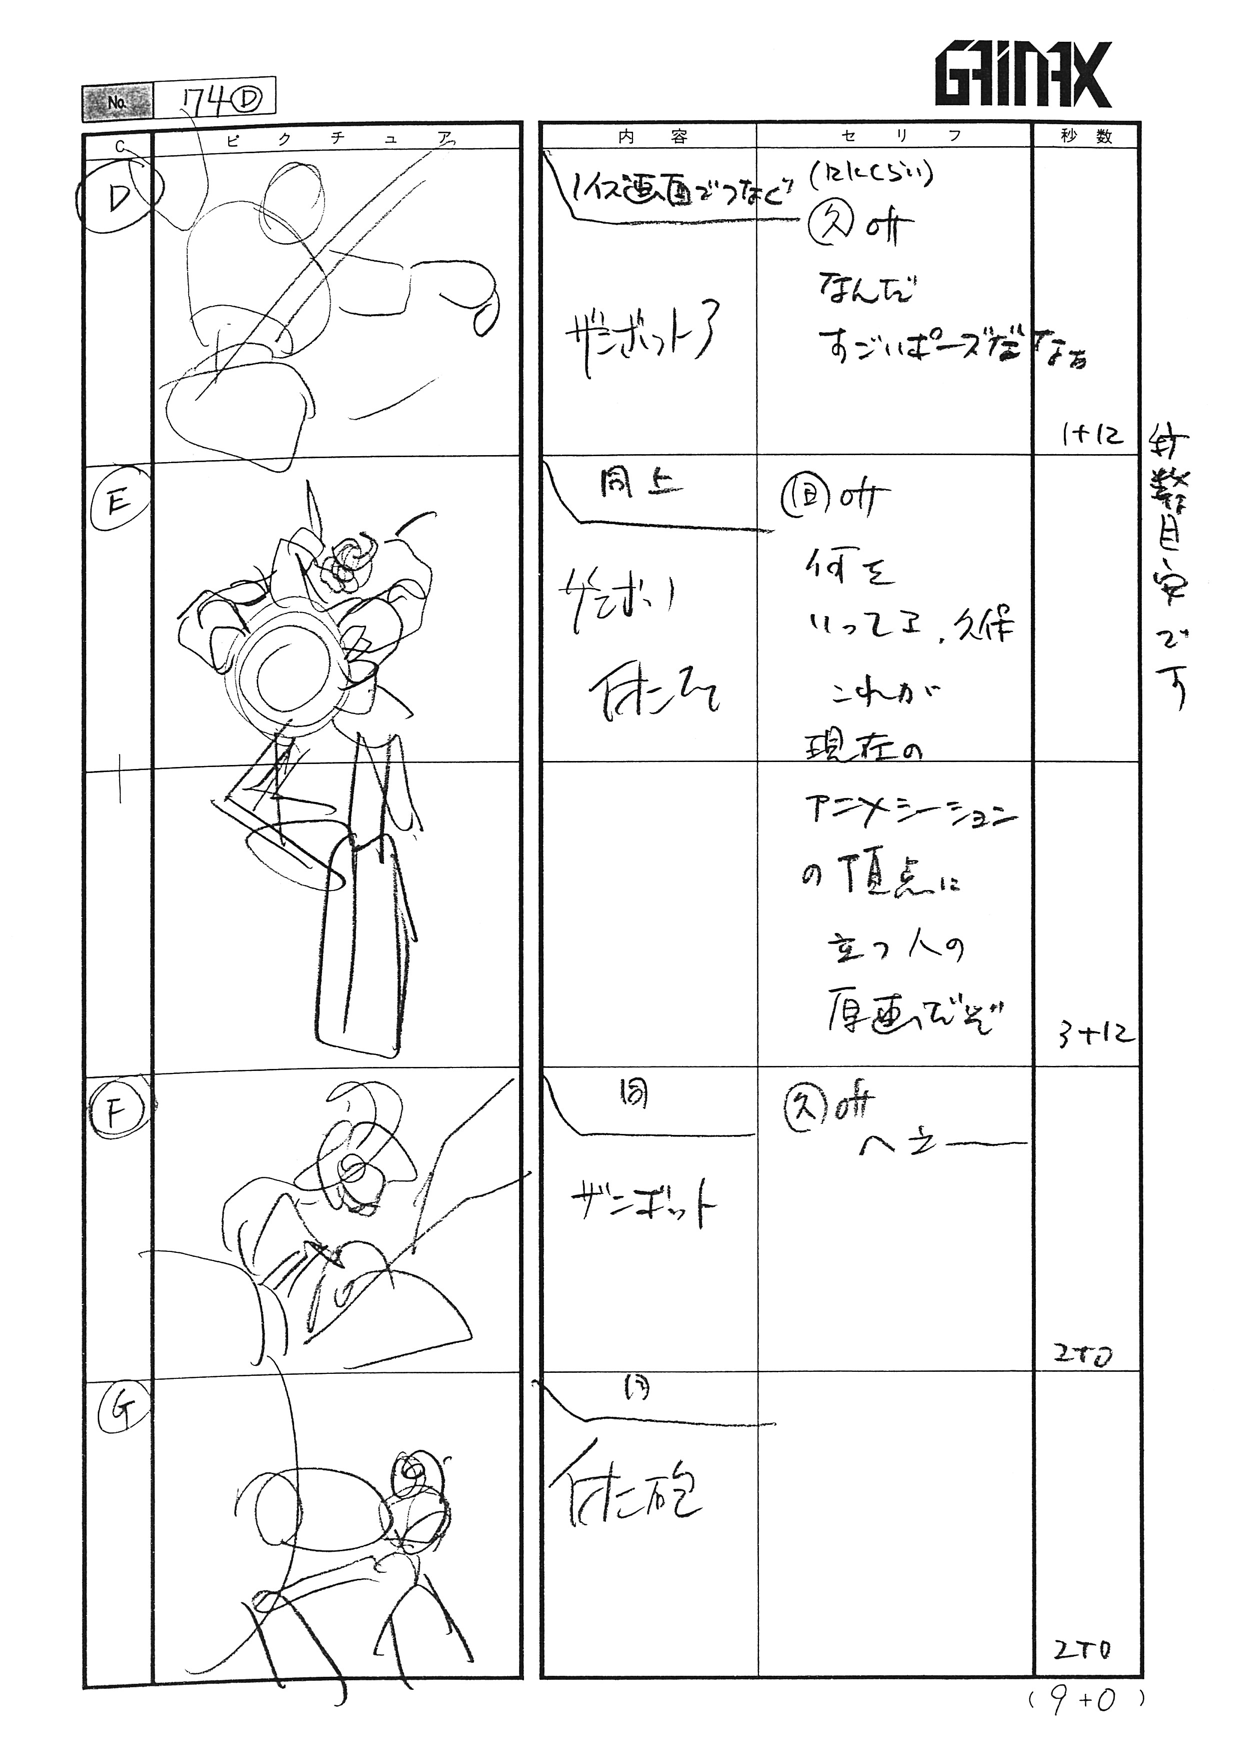 GAINAX
No. 74Ⓓ
C ピクチュア 内容 セリフ 秒数
D
ノイズ画面でつなぐ
ザンボット3
久 off
なんだ
すごいポーズだなぁ
1+12
秒数目安です
E
同上
ザンボット
off
何を
いってる、久保
これが
現在の
アニメーション
の頂点に
立つ人の
原画だぞ
3+12
F
同
ザンボット
久 off
へえ――
2+0
G
同
砲
2+0
(9+0)